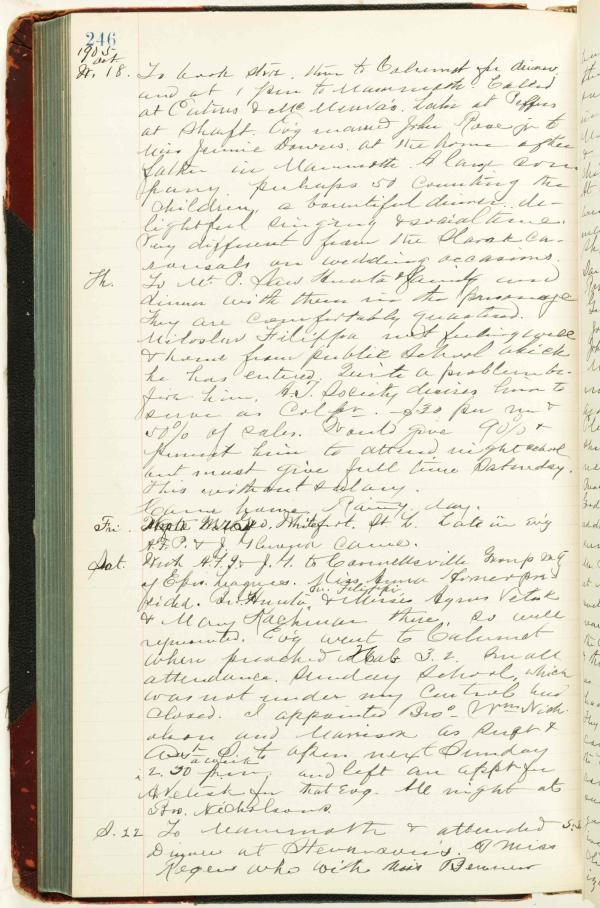 246
1905
Oct
W. 18. To book store, then to Calumet for dinner
and at 1 p.m to Mammoth. Called
at & Later at
at Shaft. Ev'g married John Rose jr to
Miss Jennie Downs, at the home of the
father in Mammoth. A large com-
pany, perhaps 50 counting the
children, a bountiful dinner, de-
lightful singing & social time.
Very different from the Slavak ca-
rousals on wedding occasions.
Th. To Mt P. Saw Hunta & family and
dinner with them in the parsonage
They are comfortably quartered.
Miloslav Filippa not feeling well
& home from public School which
he has entered. Quite a problem be-
fore him. A.T. Society desires him to
serve as Colp'r. - $20 per m &
50% of sales. Would give 90% &
permit him to attend night school
but must give full time Saturday.
This without salary.
Came home. Rainy day.
Fri. Wrote Geo. Whitefoot. St L. Late in Ev'g
A.F.P. & J. came.
Sat. With & J. to Connellsville Group m'g
of Epw. Leagues. Miss Anna pre-
sided. Hunta, & Misses Agnes
& Mary there, so well
represented. Ev'g went to Calumet
when preached Hab 3.2. Small
attendance. Sunday School, which
was not under my control had
closed. I appointed Bro's Wm Nich-
olson and Morrison as Sup't &
Ass't S. to open next Sunday
2.30 p.m, and left an app't for
for that Ev'g. All night at
Bro. Nicholson's.
S. 22 To Mammoth & attended S.S.
Dinner at &
who with Miss